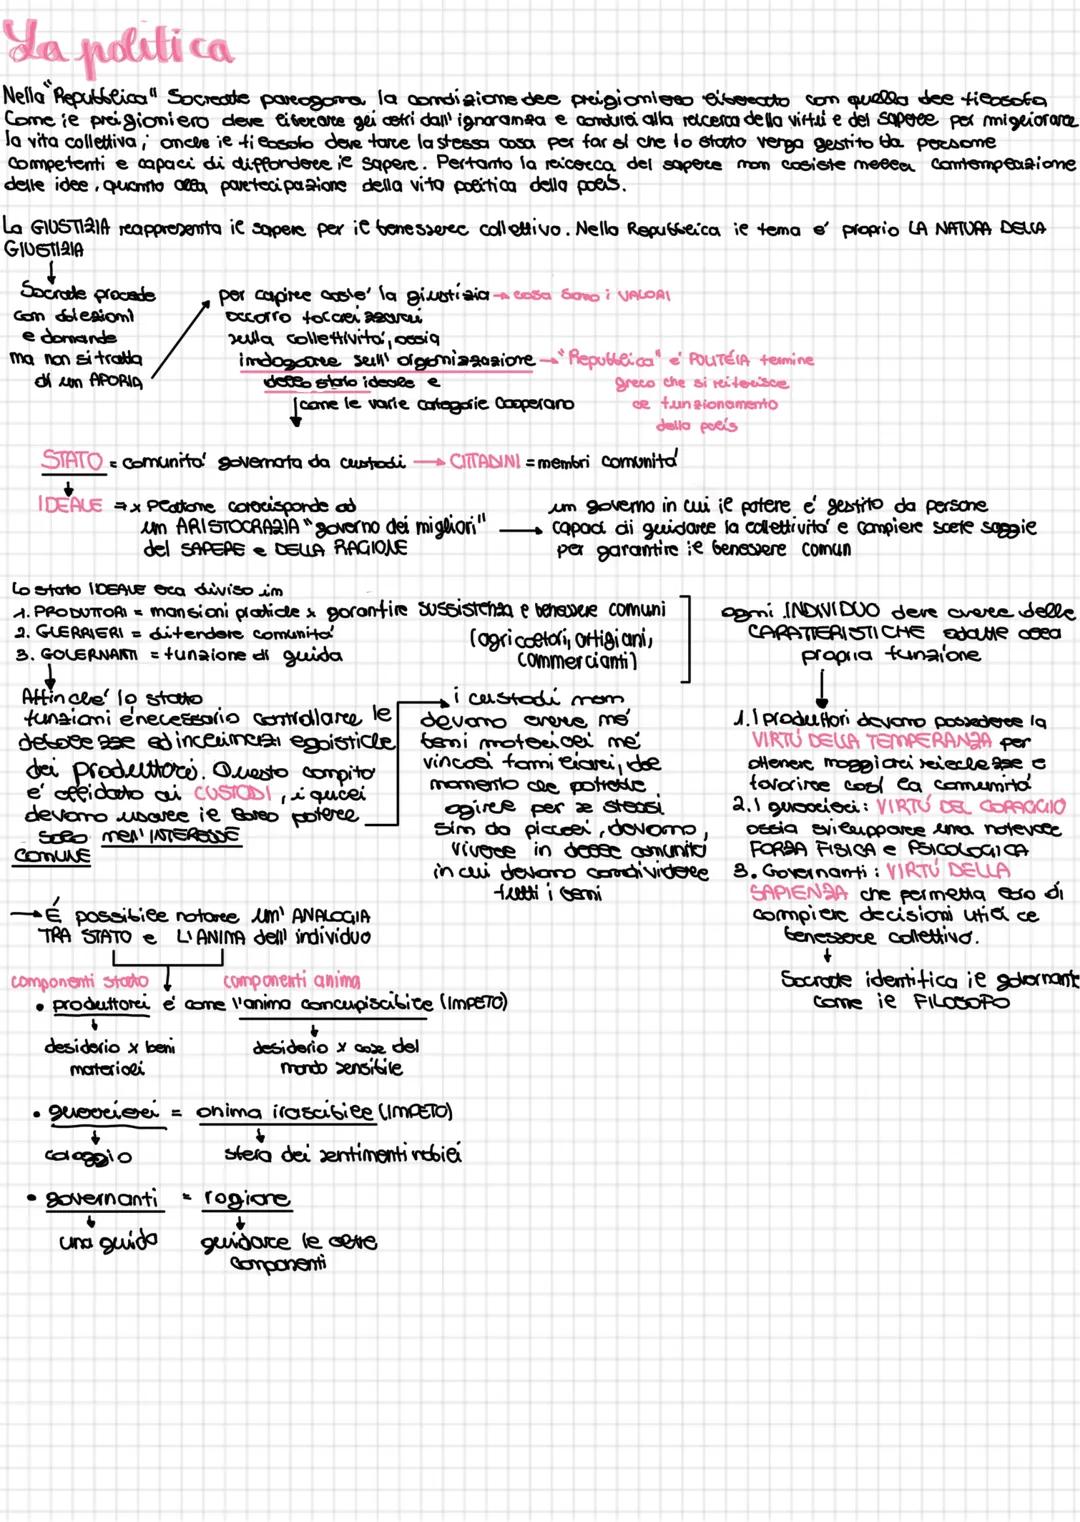 La politica
Nella "Repubblica" Socrate paragona la condizione del prigioniero liberato con quella del filosofo
Come il prigioniero deve liberare gli altri dall'ignoranza e condurli alla ricerca della virtù e del sapere per migliorare
la vita collettiva; anche il filosofo deve fare la stessa cosa per far sì che lo stato venga gestito da persone
competenti e capaci di diffondere il sapere. Pertanto la ricerca del sapere non cosiste nella contemplazione
delle idee, quanto alla partecipazione della vita politica della polis.
La GIUSTIZIA rappresenta il sapere per il benessere collettivo. Nella Repubblica il tema e' proprio LA NATURA DELLA
GIUSTIZIA
Socrate procede
con obiezioni
e domande
ma non si tratta
di un APORIA
per capire cos'e' la giustizia → cosa sono i VALORI
occorre
sulla collettivita', ossia
indagare sull'organizzazione → "Repubblica" e' POLITÉIA termine
dello stato ideale e
greco che si riferisce
come le varie categorie cooperano
al funzionamento
della polis
STATO = comunita' governata da custodi → CITTADINI = membri comunita'
IDEALE ⇒ x Platone corrisponde ad
un ARISTOCRAZIA "governo dei migliori" →
del SAPERE e DELLA RAGIONE
un governo in cui il potere e' gestito da persone
capaci di guidare la collettivita' e compiere scelte saggie
per garantire il benessere comun
Lo stato IDEALE era diviso in
1. PRODUTTORI = mansioni pratiche x garantire sussistenza e benessere comuni
2. GUERRIERI = difendere comunita'
(agricoltori, artigiani,
3. GOVERNANTI = funzione di guida
commercianti)
ogni INDIVIDUO deve avere delle
CARATTERISTICHE adatte alla
propria funzione
Affinche' lo stato
funzioni é necessario controllare le
debolezze ed inclinazi egoistiche
dei produttori. Questo compito
e' affidato ai CUSTODI, i quali
devono usare il loro potere
solo nell'INTERESSE
COMUNE
i custodi non
devono avere né
beni materiali né
vincoli familiari, che
momento che potrebbe
agire per se stessi
Sin da piccoli, devono,
vivere in delle comunità
in cui devono condividere
tutti i beni
1. I produttori devono possedere la
VIRTÙ DELLA TEMPERANZA per
ottenere maggiori ricchezze e
favorire così la comunità
2. I guerrieri: VIRTÙ DEL CORAGGIO
ossia sviluppare una notevole
FORZA FISICA e PSICOLOGICA
3. Governanti: VIRTÙ DELLA
SAPIENZA che permetta loro di
compiere decisioni utili al
benessere collettivo.
Socrate identifica il governant
come il FILOSOFO
→ É possibile notare un'ANALOGIA
TRA STATO e L'ANIMA dell'individuo
componenti stato
componenti anima
• produttori e' come l'anima concupiscibile (IMPETO)
desiderio x beni
materiali
desiderio x cose del
mondo sensibile
• guerrieri = anima irascibile (IMPETO)
coraggio
sfera dei sentimenti nobili
• governanti = ragione
una guida
guidare le altre
componenti